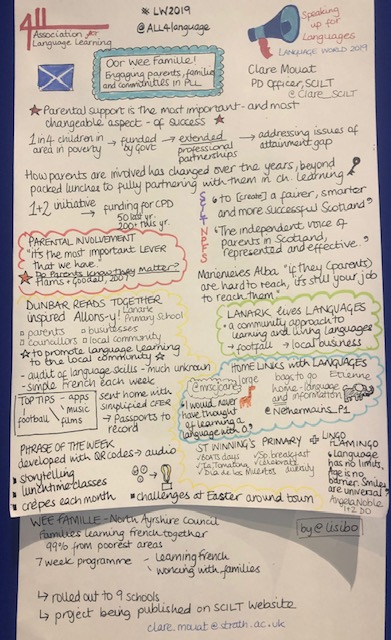 Association for
Language Learning
# LW2019
@ALL4language
Speaking
up for
Languages
LANGUAGE WORLD 2019
Oor Wee Familie!
Engaging parents, families
and communities in PLL
Clare Mouat
PD Officer, SCILT
@Clare_SCILT
Parental support is the most important - and most
changeable aspect - of success
1 in 4 children in
area in poverty
→ funded
by Govt
→ extended
professional
partnerships
→ addressing issues of
attainment gap
How parents are involved has changed over the years, beyond
packed lunches to fully partnering with them in ch. learning
1+2 initiative
→ funding for CPD
50 last yr.
200+ this yr.
"to [create] a fairer, smarter
and more successful Scotland"
NPFS
"The independent voice of
parents in Scotland,
represented and effective."
PARENTAL INVOLVEMENT
"it's the most important LEVER
that we have"
Do Parents know they matter?
Harris + Goodall, 2007
Alba "if they (parents)
are hard to reach, it's still your job
to reach them"
DUNBAR READS TOGETHER
inspired Allons-y! Lanark
Primary School
parents
businesses
councillors
local community
to promote language learning
to the local community
- audit of language skills - much unknown
- simple French each week
TOP TIPS
- apps
football
music
films
sent home with
simplified CFER
→ Passports to
record
LANARK lives LANGUAGES
• a community approach to
learning and using languages
→ footfall → local business
HOME LINKS with LANGUAGES
"I would never
have thought
of learning a
language with 0"
bags to go
home - language
and information
Etienne
@Nethermains_P1
PHRASE OF THE WEEK
developed with QR codes → audio
storytelling
lunchtime classes
crêpes each month
challenges at Easter around town
ST WINNING'S PRIMARY
BOATS days
La Tomatina
Dia de los Muertos
Sp. breakfast
celebrate
diversity
+ LINGO
FLAMINGO
"Language
has no limits,
Age is no
barrier. Smiles
are universal"
Angela Noble
1+2 DO
WEE FAMILLE - North Ayrshire Council
Families learning french together
99% from poorest areas
7 week programme
- learning french
- working with families
→ rolled out to 9 schools
→ project being published on SCILT website
by @lisibo
clare.mouat@strath.ac.uk